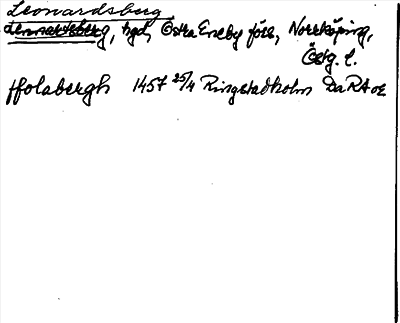 Leonardsberg
Lennardsberg, hgd, Östra Eneby förs, Norrköping,
Östg. l.
ffolabergh 1457 25/4 Ringstadholm DaRA oE